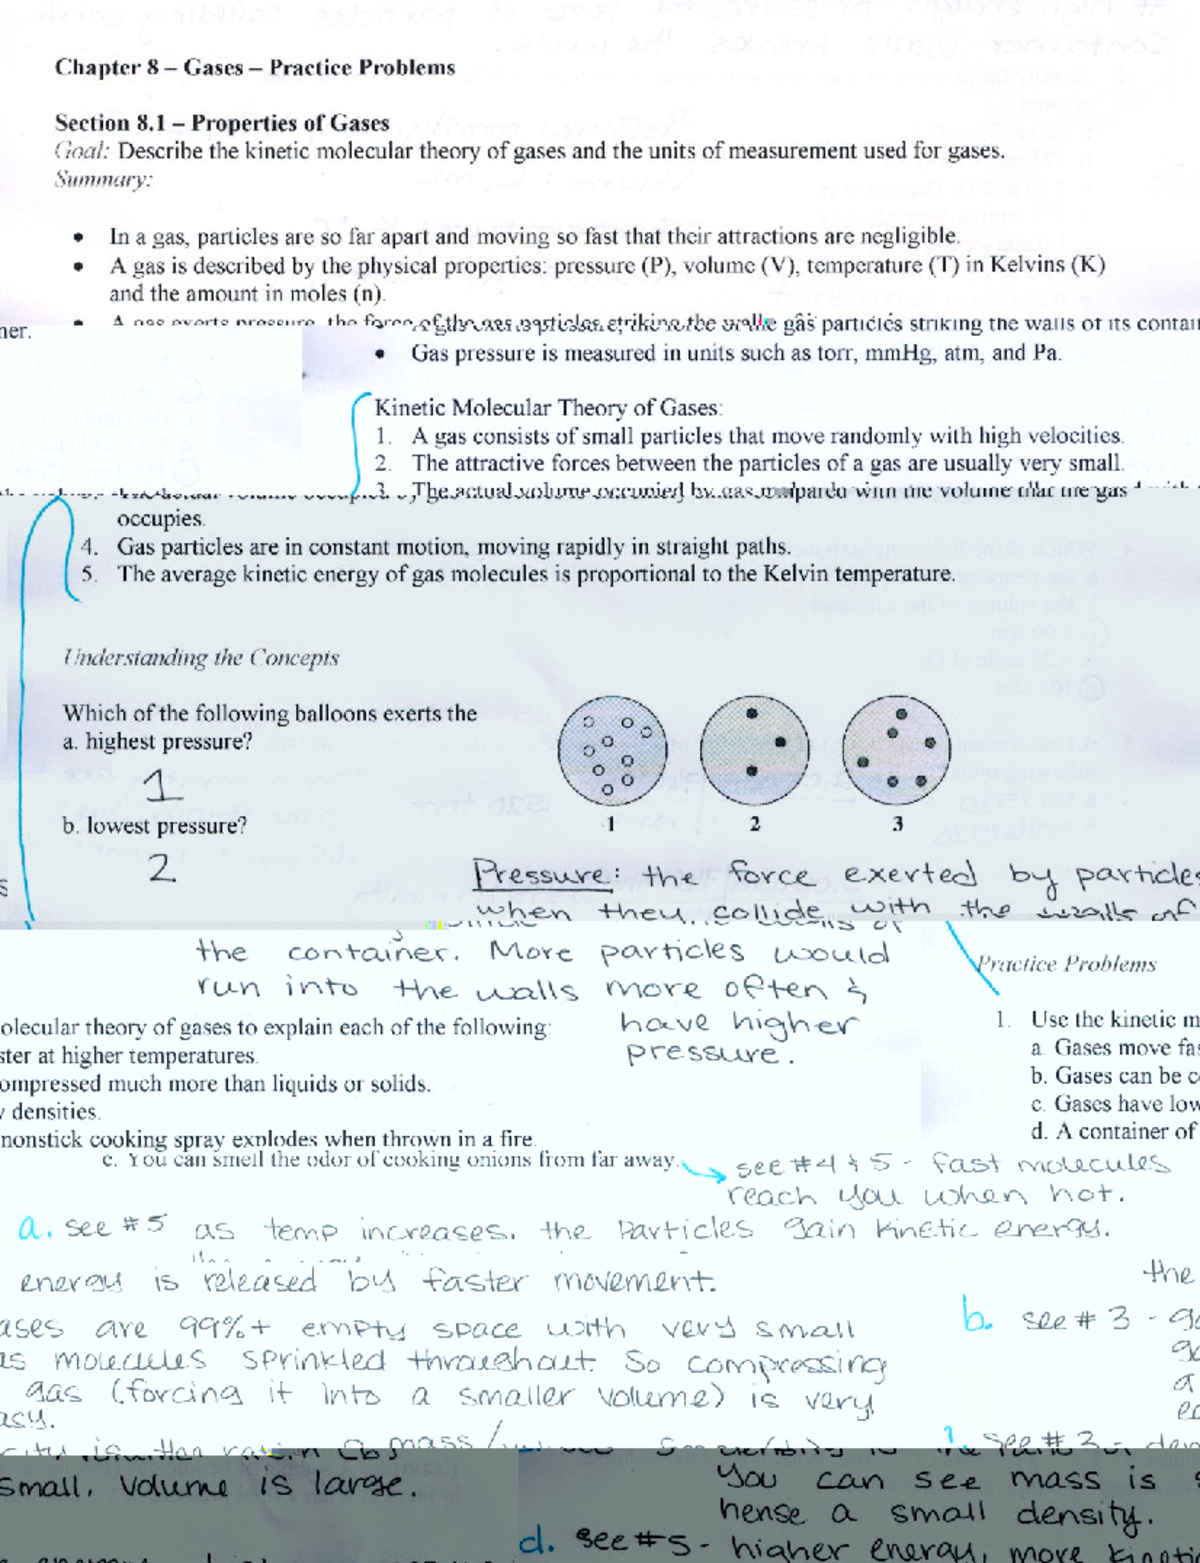 Chapter 8 – Gases – Practice Problems
Section 8.1 – Properties of Gases
Goal: Describe the kinetic molecular theory of gases and the units of measurement used for gases.
Summary:
• In a gas, particles are so far apart and moving so fast that their attractions are negligible.
• A gas is described by the physical properties: pressure (P), volume (V), temperature (T) in Kelvins (K)
and the amount in moles (n).
• A gas exerts pressure, the force of the gas particles striking the walls gas particles striking the walls of its contai
ner.
• Gas pressure is measured in units such as torr, mmHg, atm, and Pa.
Kinetic Molecular Theory of Gases:
1. A gas consists of small particles that move randomly with high velocities.
2. The attractive forces between the particles of a gas are usually very small.
3. The actual volume occupied by gas the volume that the gas
occupies.
4. Gas particles are in constant motion, moving rapidly in straight paths.
5. The average kinetic energy of gas molecules is proportional to the Kelvin temperature.
Understanding the Concepts
Which of the following balloons exerts the
a. highest pressure?
1
b. lowest pressure?
2
1 2 3
Pressure: the force exerted by particles
when they collide with the walls of
the container. More particles would
run into the walls more often &
have higher
pressure.
Practice Problems
1. Use the kinetic m
olecular theory of gases to explain each of the following:
a. Gases move fas
ster at higher temperatures.
b. Gases can be c
ompressed much more than liquids or solids.
c. Gases have low
w densities.
d. A container of
nonstick cooking spray explodes when thrown in a fire.
e. You can smell the odor of cooking onions from far away.
see #4 & 5 - fast molecules
reach you when hot.
a. see #5 as temp increases, the particles gain kinetic energy.
the
energy is released by faster movement.
b. see # 3 - ga
ases are 99%+ empty space with very small
ga
as molecules sprinkled throughout. So compressing
a
gas (forcing it into a smaller volume) is very
ea
asy.
see # 3 - den
mass /
You can see mass is s
small, volume is large.
hense a small density.
d. see #5 - higher energy, more kineti